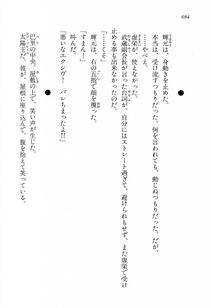 684
輝元は、身動きを止めた。
本当は、受け流すつもりだった。何を言われても、動じぬつもりだった。だが、
……やべえ。
武蔵副会長が言った台詞が、自分にはストレート過ぎて、避けられもせず、また虚栄で
止める事も出来なかった。
「……くそ」
輝元は、右の五指で顔を覆った。
「すまん」
「悪いなエクシヴ！　バレちまったよ！！」
巴里の中央、屋敷の上で、笑い声が生じた。
太陽王だ。彼が、屋根に座り込んで、腹を抱えて笑っている。